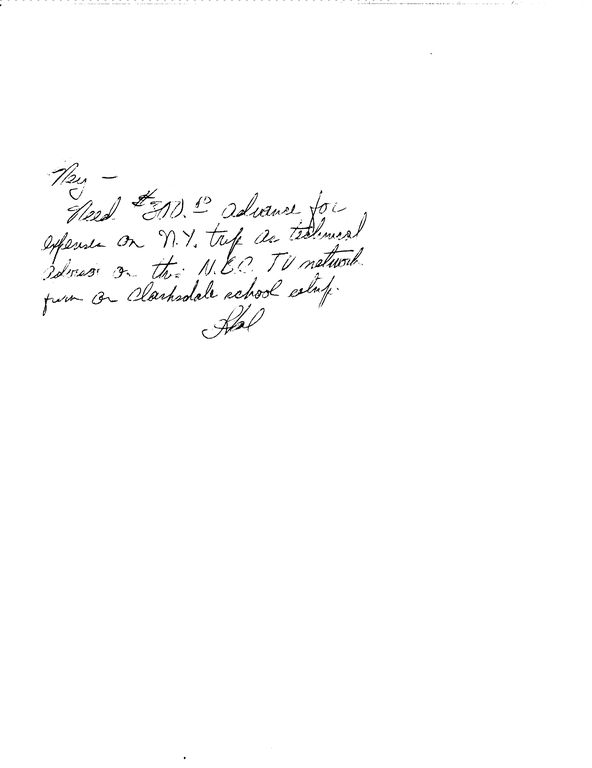 Need $300.00 advance for
expenses on N.Y. trip as technical
advisor on the N.B.C. TV network
on Clarksdale school setup.
Hal